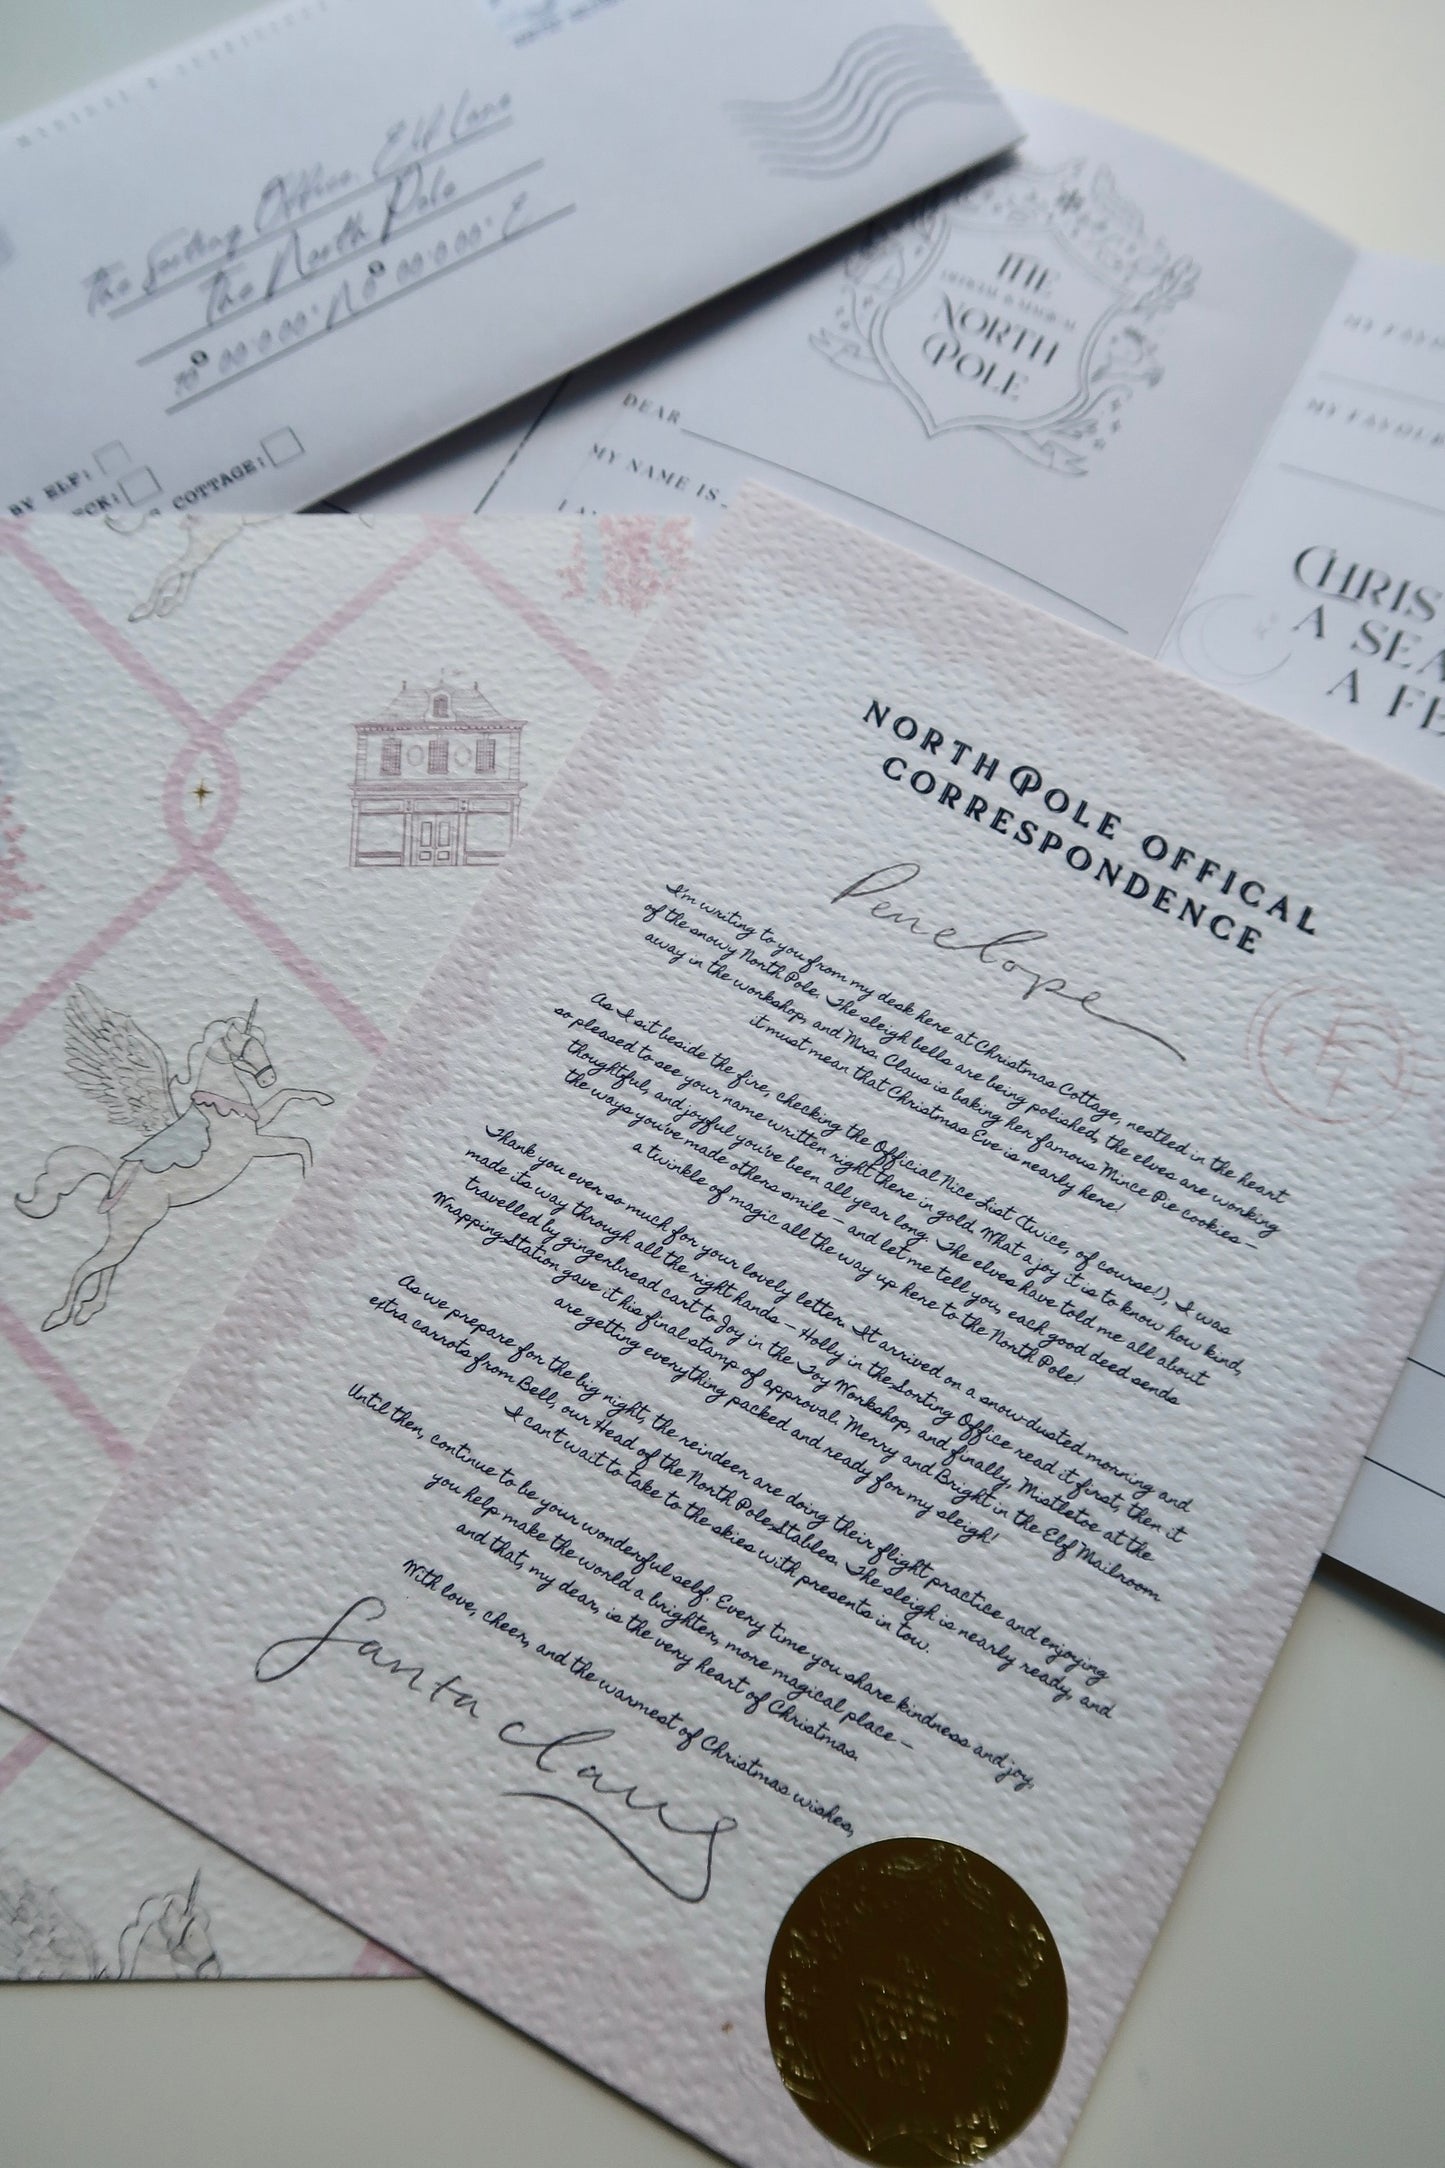 The Sorting Office, Elf Lane
The North Pole
BY ELF:
COTTAGE:
THE
NORTH
POLE
DEAR
MY NAME IS
MY FAVOUR
CHRIS
A SEA
A FE
NORTH POLE OFFICAL
CORRESPONDENCE
Penelope
I'm writing to you from my desk here at Christmas Cottage, nestled in the heart
of the snowy North Pole. The sleigh bells are being polished, the elves are working
away in the workshop, and Mrs. Claus is baking her famous Mince Pie cookies –
it must mean that Christmas Eve is nearly here!
As I sit beside the fire, checking the Official Nice List (twice, of course!), I was
so pleased to see your name written right there in gold. What a joy it is to know how kind,
thoughtful, and joyful you've been all year long. The elves have told me all about
the ways you've made others smile – and let me tell you, each good deed sends
a twinkle of magic all the way up here to the North Pole!
Thank you ever so much for your lovely letter. It arrived on a snow-dusted morning and
made its way through all the right hands – Holly in the Sorting Office read it first, then it
travelled by gingerbread cart to Joy in the Toy Workshop, and finally, Mistletoe at the
Wrapping Station gave it his final stamp of approval. Merry and Bright in the Elf Mailroom
are getting everything packed and ready for my sleigh!
As we prepare for the big night, the reindeer are doing their flight practice and enjoying
extra carrots from Bell, our Head of the North Pole Stables. The sleigh is nearly ready, and
I can't wait to take to the skies with presents in tow.
Until then, continue to be your wonderful self. Every time you share kindness and joy,
you help make the world a brighter, more magical place –
and that, my dear, is the very heart of Christmas.
With love, cheer, and the warmest of Christmas wishes,
Santa Claus